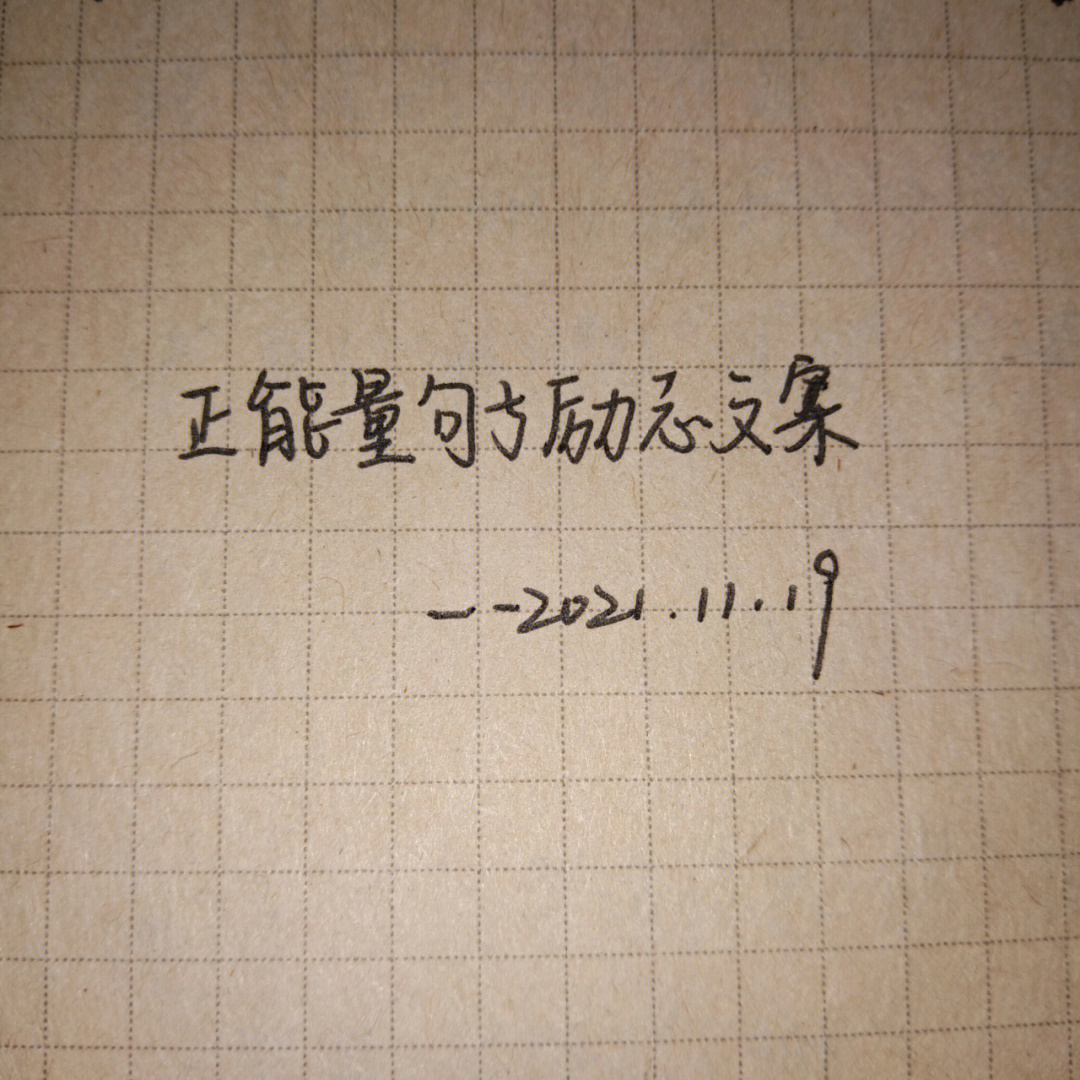 正能量句与励志文案
——2021.11.19